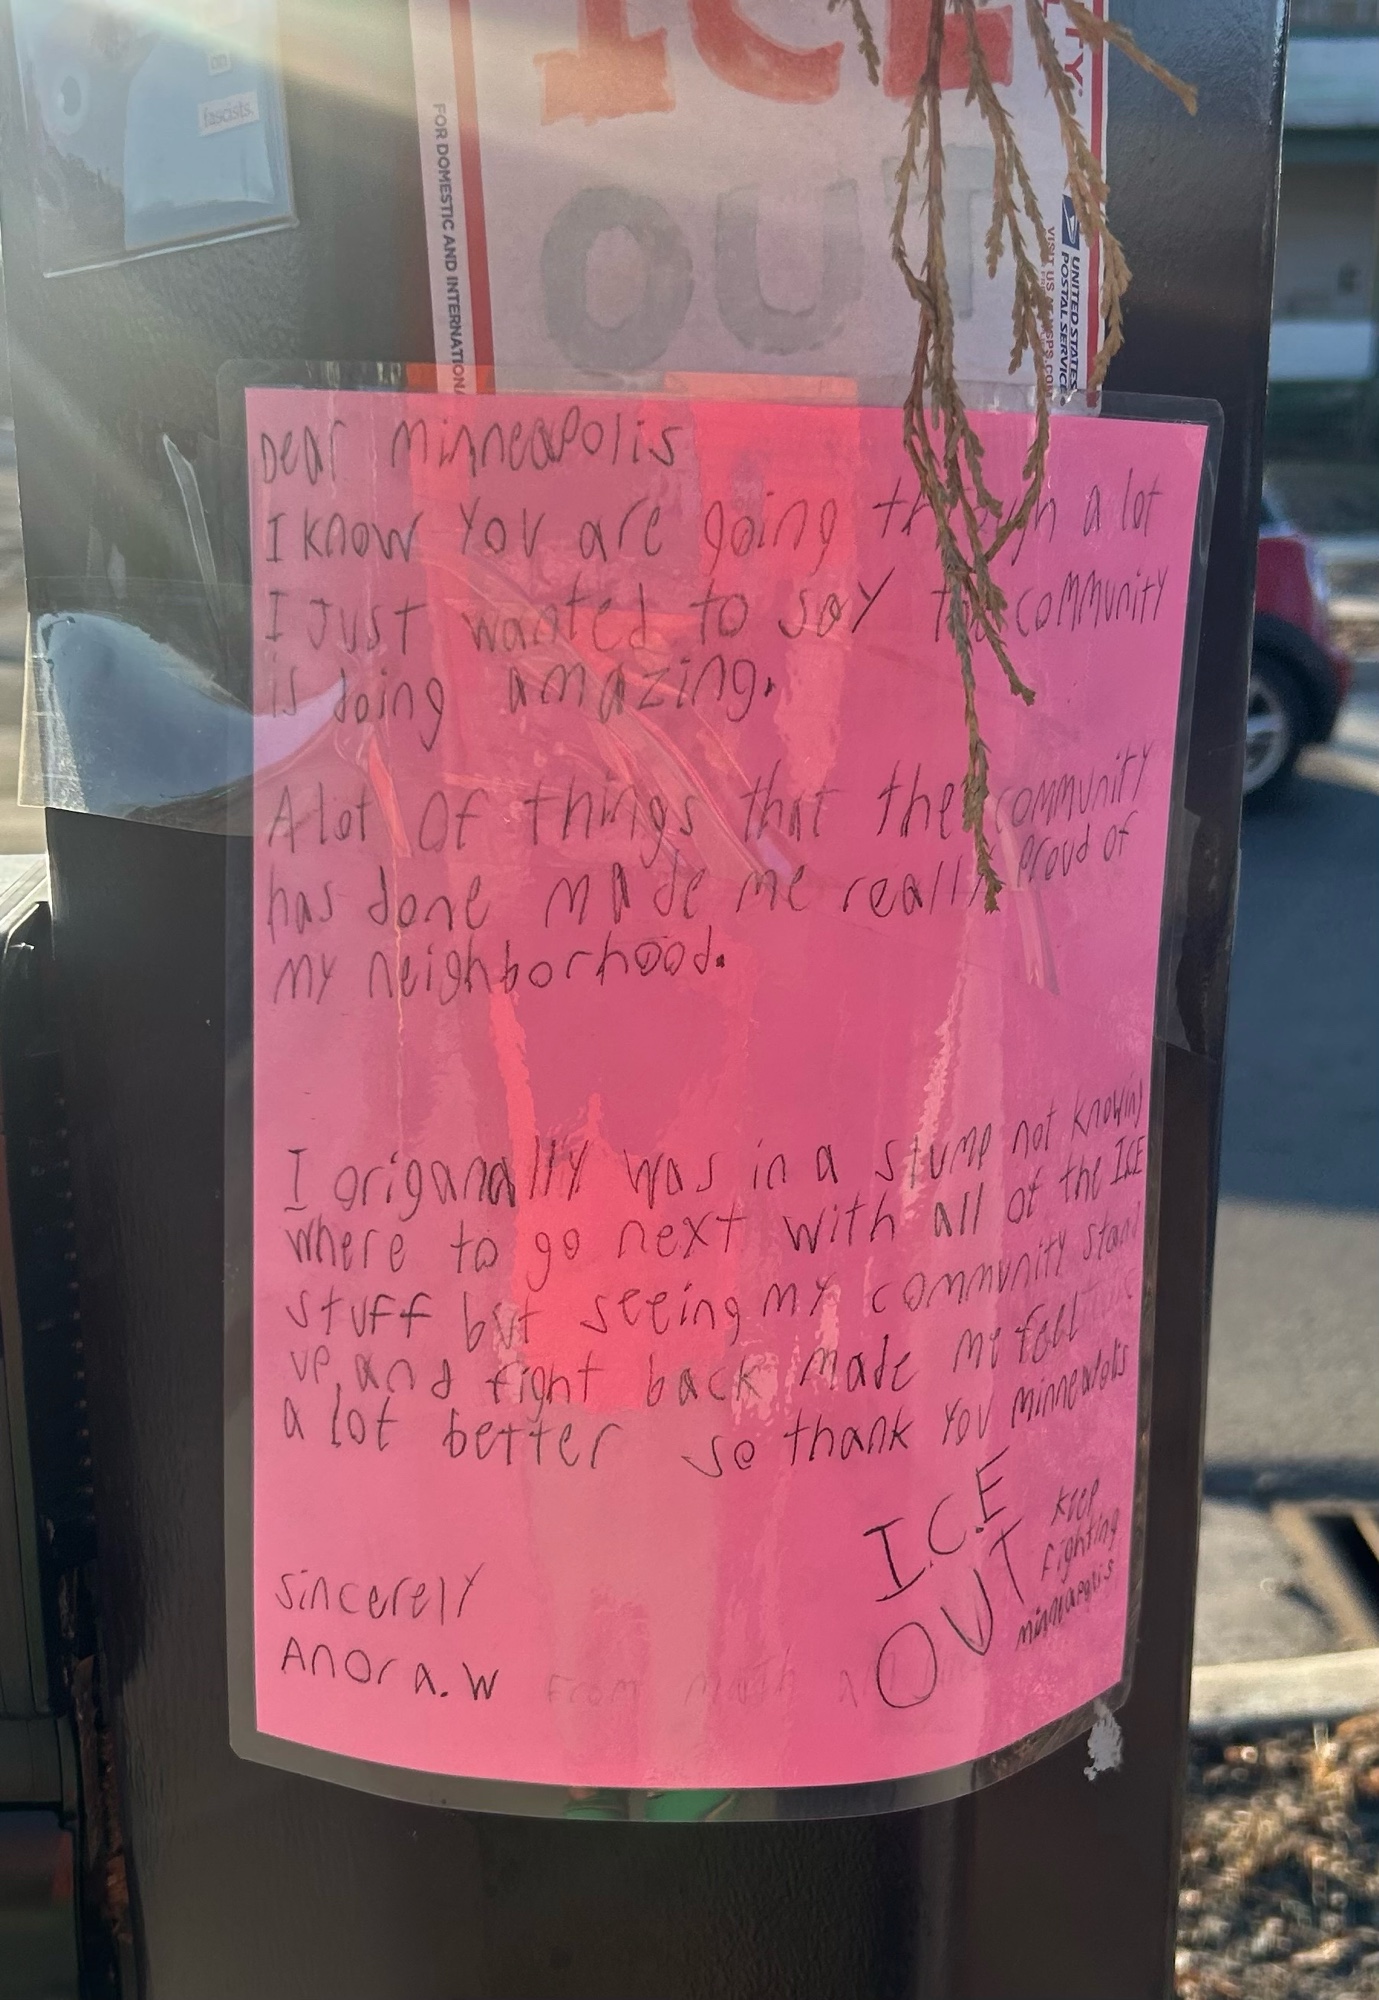 on
fascists.
ICE
OUT
FOR DOMESTIC AND INTERNATIONA
UNITED STATES
POSTAL SERVICE
VISIT US
Dear Minneapolis
I know You are going through a lot
I Just wanted to say the community
is doing amazing.
A lot of things that the community
has done made me really proud of
my neighborhood.
I origanally was in a slump not knowing
where to go next with all of the ICE
stuff but seeing my community stand
up and fight back made me feel
a lot better so thank You Minneapolis
I.C.E
OUT
keep
fighting
minneapolis
sincerely
Anora.W
From